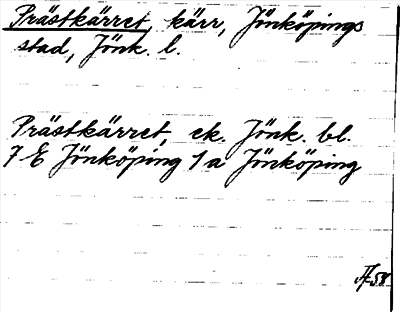 Prästkärret, kärr, Jönköpings
stad, Jönk. l.
Prästkärret, ek. Jönk. bl.
7 E Jönköping 1 a Jönköping